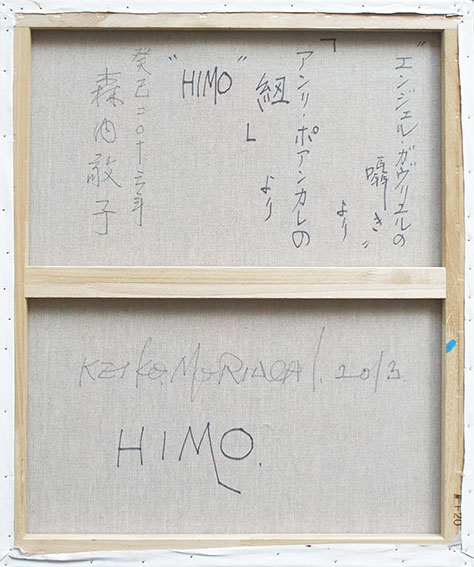 "エンジェル・ガヴリエルの
囁き"
より
「アンリ・ポアンカレの
紐」
より
"HIMO"
癸巳二〇十三年
森内敬子
KEIKO.MORIUCHI. 2013
HIMO.